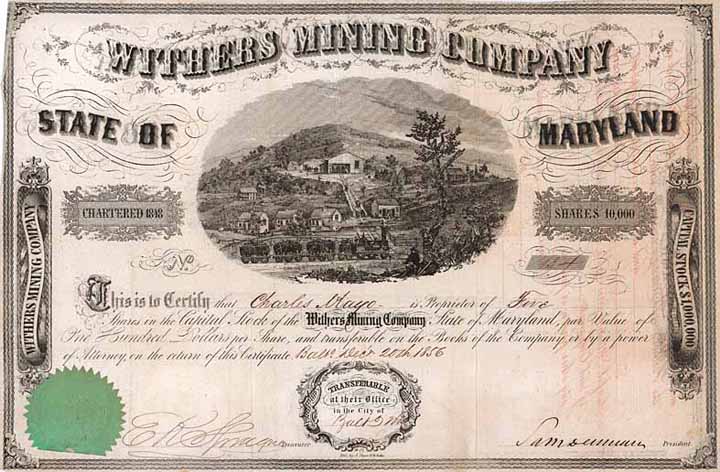 WITHERS MINING COMPANY
STATE OF MARYLAND
CHARTERED 1848
SHARES 10,000
WITHERS MINING COMPANY
CAPITAL STOCK $1,000,000
No
This is to Certify that Charles Mayo is Proprietor of Five
Shares in the Capital Stock of the Withers Mining Company State of Maryland, par Value of
One Hundred Dollars per Share, and transferable on the Books of the Company or by a power
of Attorney, on the return of this Certificate. Balt. Decr 20th 1856
TRANSFERABLE
at their Office
in the City of
Balto Md
President